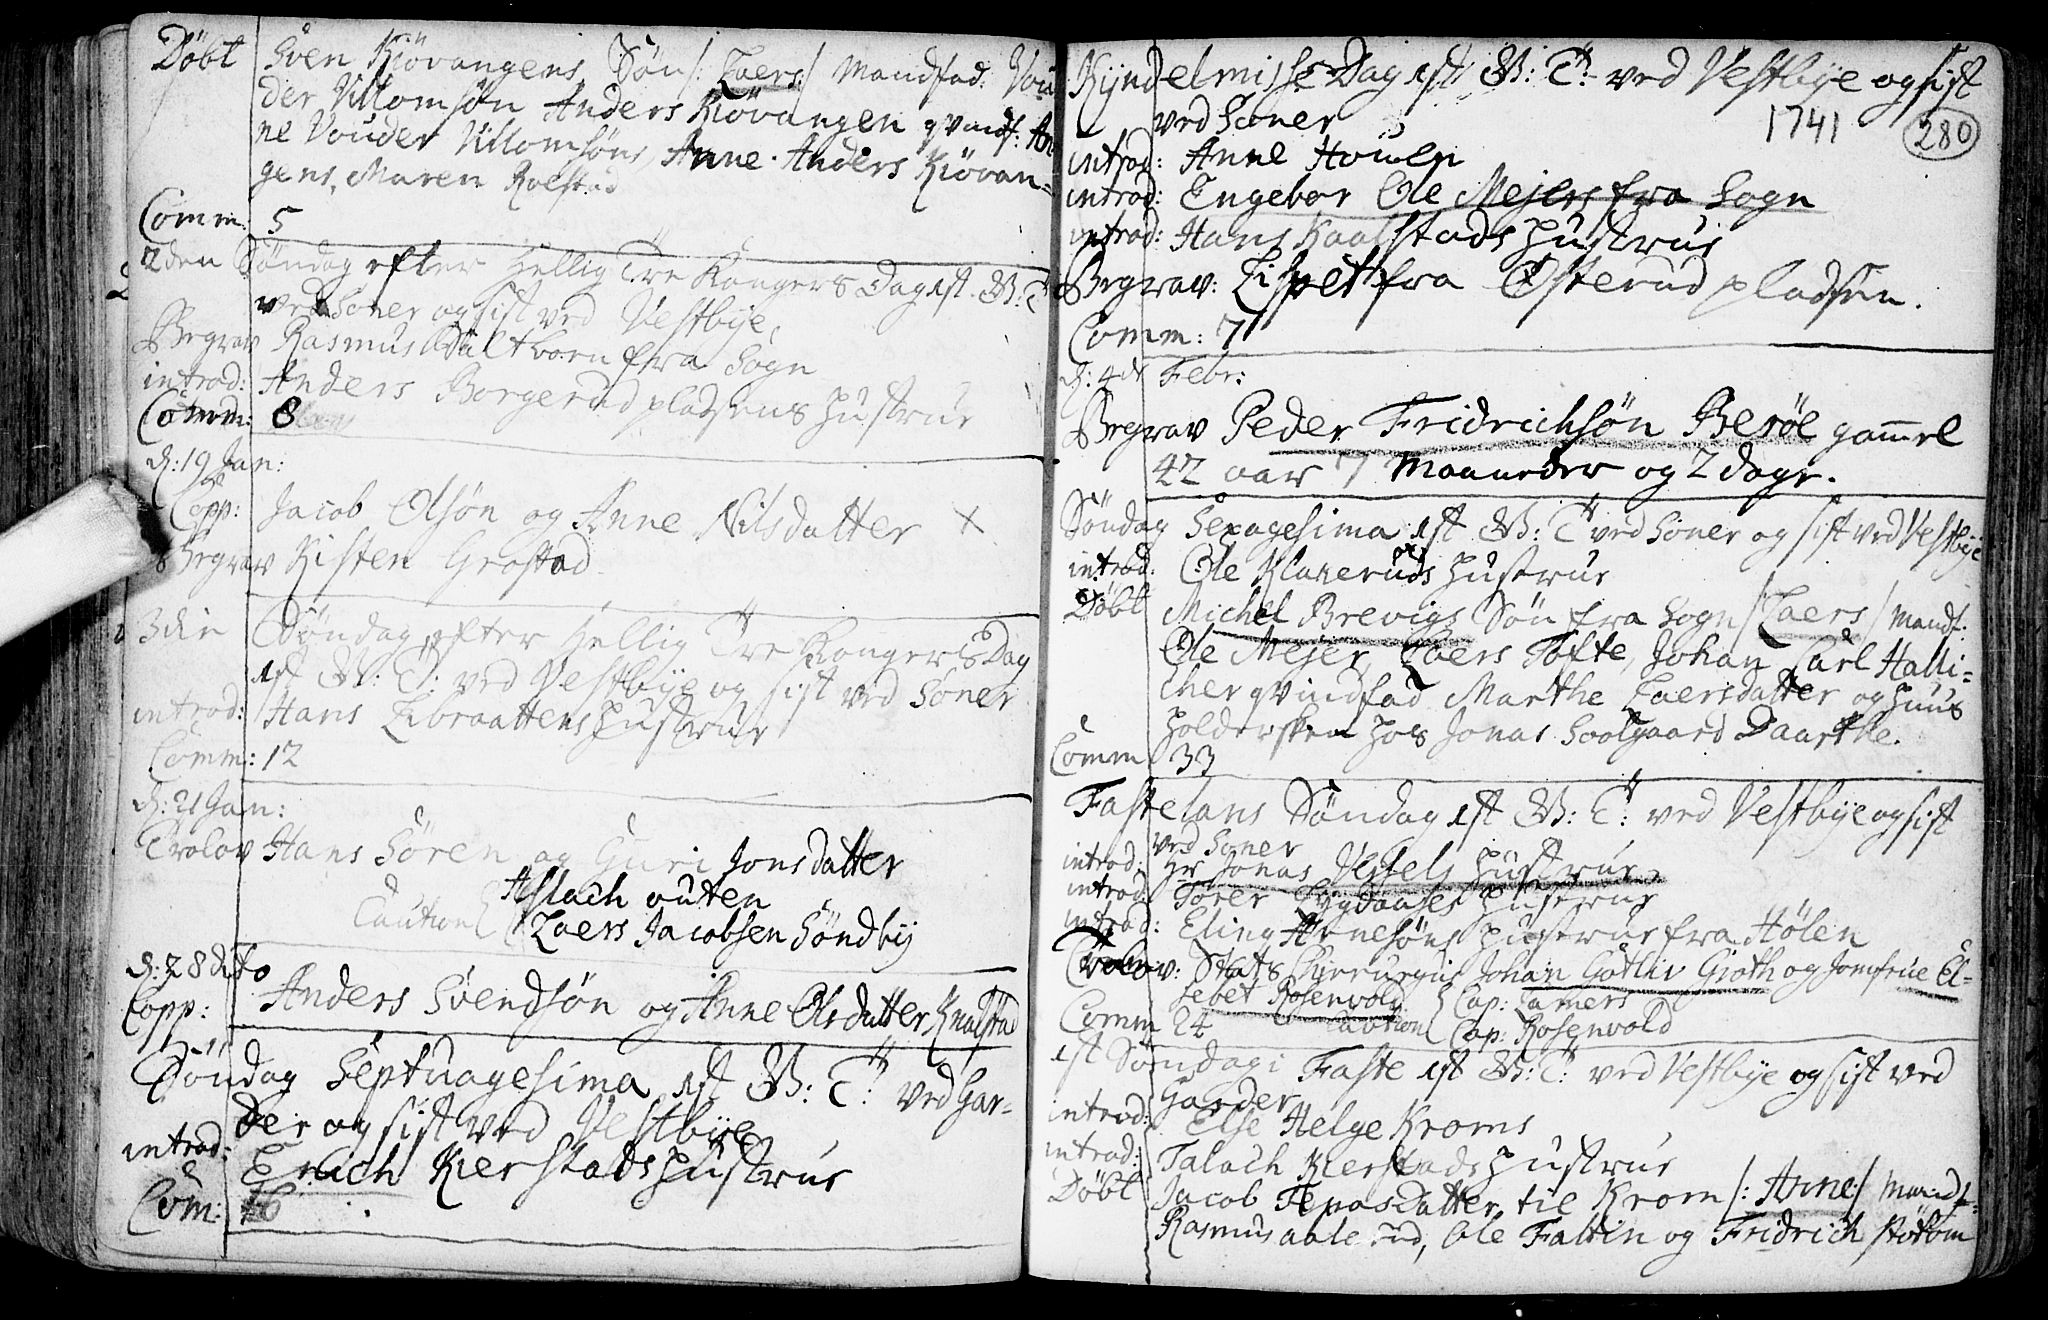 Döbt Sven Kiövangens Søn /: Laers :/ Mandfad: Vou
der Villomsøn Anders Kiövangen qvindf: An
ne Vouder Villomsøns, Anne Anders Kiövan=
gens, Maren Rolstad
Comm: 5
2den Søndag efter Hellig Tre Kongers Dag ist B: T:
ved Soner og sist ved Vestbye.
Begrav Rasmus Dält born fra Sogn
introd: Anders Borgerud pladsens hustrue
Comm: 8
d: 19 Jan:
Copp: Jacob Olsøn og Anne Nilsdatter X
Begrav Kisten Grostad
3die Søndag efter Hellig Tre Konger's Dag
ist B: T: ved Vestbye og sist ved Soner
introd: Hans Libraattens hustrue
Comm: 12
d: 21 Jan:
Trolov Hans Sören og Guri Jonsdatter
Aslach outen
Caution Laers Jacobsen Söndby
d: 28 dito
Copp: Anders Svendsøn og Anne Olsdatter Knalstad
Søndag Septuagesima ist B: T: ved Gar=
der og sist ved Vestbye
introd: Erich Kierstads hustrue
Com: 16
Kyndelmisse Dag ist B: T: ved Vestbye og sist
ved Soner
1741 280
introd: Anne Houlen
introd: Engebor Ole Mejers fra Sogn
introd: Hans Kaalstads hustrue
Begrav: Lispet fra Østerud pladsen.
Comm: 7
d: 4de Febr:
Begrav Peder Fridrichsøn Besöe gamel
42 aar 7 Maaneder og 2 dage.
Søndag Sexagesima ist B: T: ved Soner og sist ved Vestbye
introd: Ole Klakeruds hustrue
Döbt Michel Brevigs Søn fra Sogn /: Laers :/ Mandf:
Ole Mejer, Laers Tofte, Johan Carl Halli=
cher qvindfad Marthe Laersdatter og huus
holdersken hos Jonas Soolgaard Daarthe.
Comm 33
Fastelans Søndag ist B: T: ved Vestbye og sist
ved Soner
introd: Hr Jonas Vessels hustrue,
introd: Torer hustrue
introd: Eling Arnesøns hustrue fra Hölen
Trolov: Stats Chirurgus Johan Gotliv Groth og Jomfrue El=
sebet Rosenvold Cap: Lamers
Comm 24 Caution Cap: Rosenvold
1st Søndag i Faste ist B: T: ved Vestbye og sist ved
Garder
introd: Else Helge Kroms
introd: Falach Kierstads hustrue
Döbt Jacob Tepasdatter til Krom /: Anne :/ Mandf=
Rasmus aalerud, Ole Faldin og Fridrich Støttom